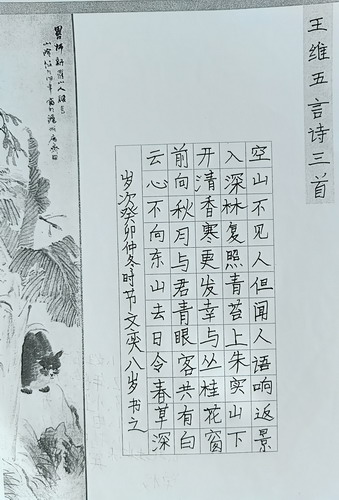 王维五言诗三首
空山不见人但闻人语响返景
入深林复照青苔上朱实山下
开清香寒更发幸与丛桂花窗
前向秋月与君青眼客共有白
云心不向东山去日令春草深
岁次癸卯仲冬时节文奕八岁书之